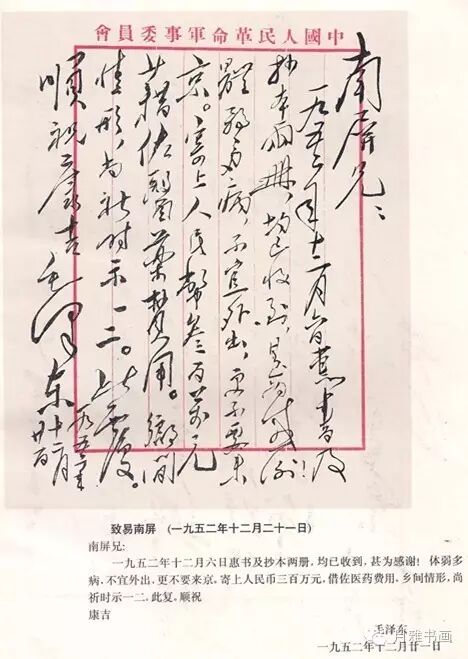 中國人民革命軍事委員會
南屏兄：
一九五二年十二月六日惠书及
抄本兩册，均已收到，甚為感谢！
體弱多病，不宜外出，更不要來
京。寄上人民幣叁百萬元
藉佐醫藥費用。鄉間
情形，尚祈时示一二。此復。
順祝康吉 毛澤东
一九五二年
十二月廿一日
致易南屏 （一九五二年十二月二十一日）
南屏兄:
一九五二年十二月六日惠书及抄本两册，均已收到，甚为感谢！体弱多
病，不宜外出，更不要来京，寄上人民币三百万元，借佐医药费用，乡间情形，尚
祈时示一二，此复，顺祝
康吉
毛泽东
一九五二年十二月廿一日
月雅书画